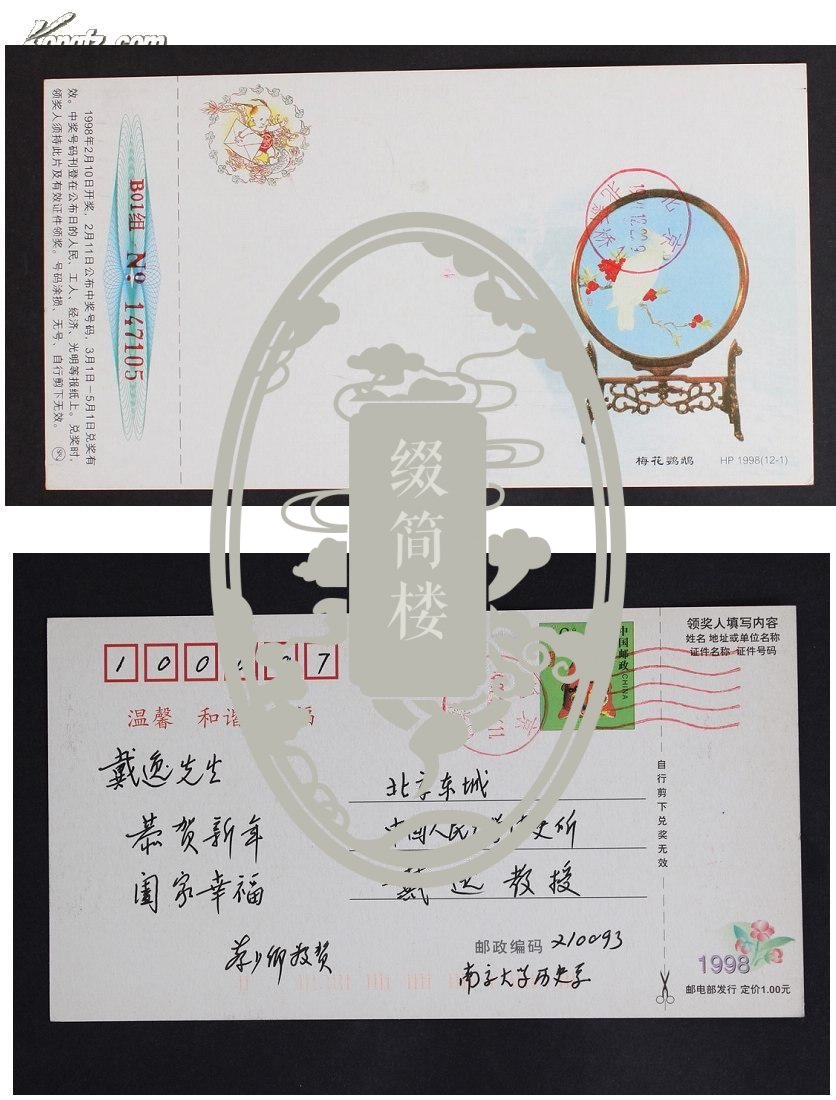 Kongfz.com
1998年2月10日开奖，2月11日公布中奖号码，3月1日-5月1日兑奖有
效。中奖号码刊登在公布日的人民、工人、经济、光明等报纸上。兑奖时，
领奖人须持此片及有效证件领奖。号码涂损、无号、自行剪下无效。
B01组 Nº 147105
北京
梅花鹦鹉 HP 1998(12-1)
缀简楼
1 0 0 7
温馨 和谐
戴逸先生
恭贺新年
阖家幸福
敬贺
中国邮政 CHINA
京
北京东城
中国人民 史所
戴逸教授
邮政编码 210093
南京大学历史系
领奖人填写内容
姓名 地址或单位名称
证件名称 证件号码
自行剪下兑奖无效
1998
邮电部发行 定价1.00元